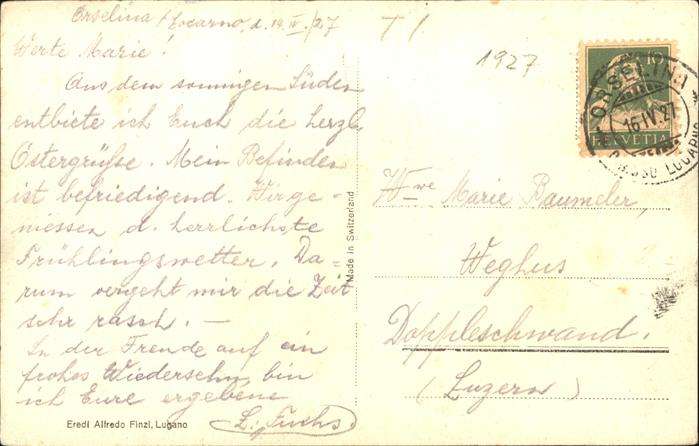 Orselina / Locarno, d. 14. IV. /27
Werte Marie!
Aus dem sonnigen Süden
entbiete ich Euch die herzl.
Ostergrüsse. Mein Befinden
ist befriedigend. Wir ge-
niessen d. herrlichste
Frühlingswetter. Da-
rum vergeht mir die Zeit
sehr rasch. —
In der Freude auf ein
frohes Wiedersehn, bin
ich Eure ergebene
L. Fuchs
Eredi Alfredo Finzi, Lugano
Made in Switzerland
1927
10
HELVETIA
ORSELINA
16.IV.27
LOCARNO
Wwe Marie Baumeler,
Weghus
Doppleschwand.
(Luzern)